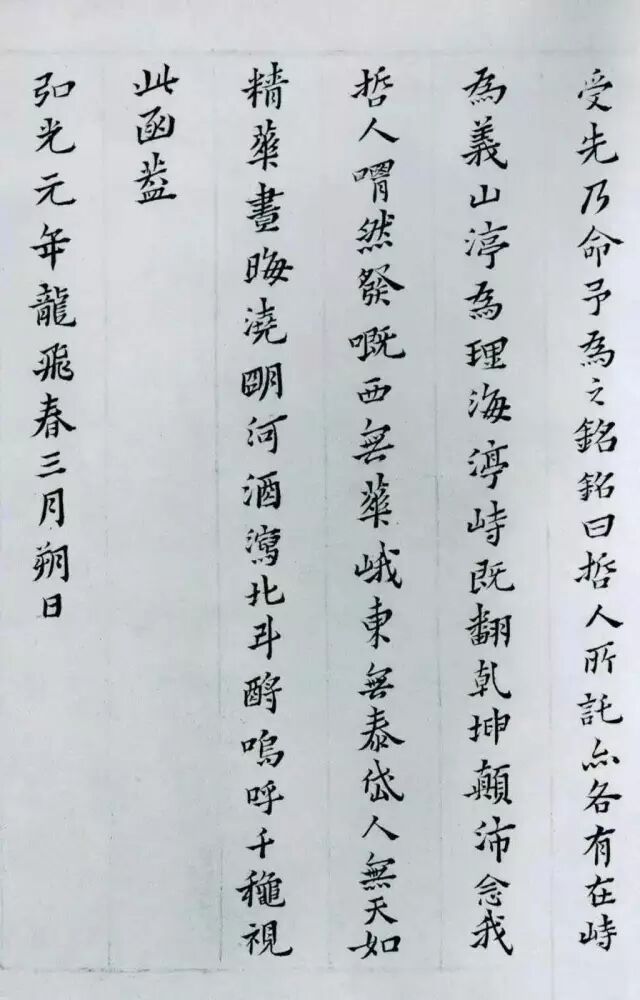 受先乃命予為之銘銘曰哲人所託亦各有在峙
為義山渟為理海渟峙既翻乾坤顛沛念我
哲人喟然發嘅西無華峨東無泰岱人無天如
精華晝晦澆明河酒瀉北斗酹嗚呼千龝視
此函蓋
弘光元年龍飛春三月朔日